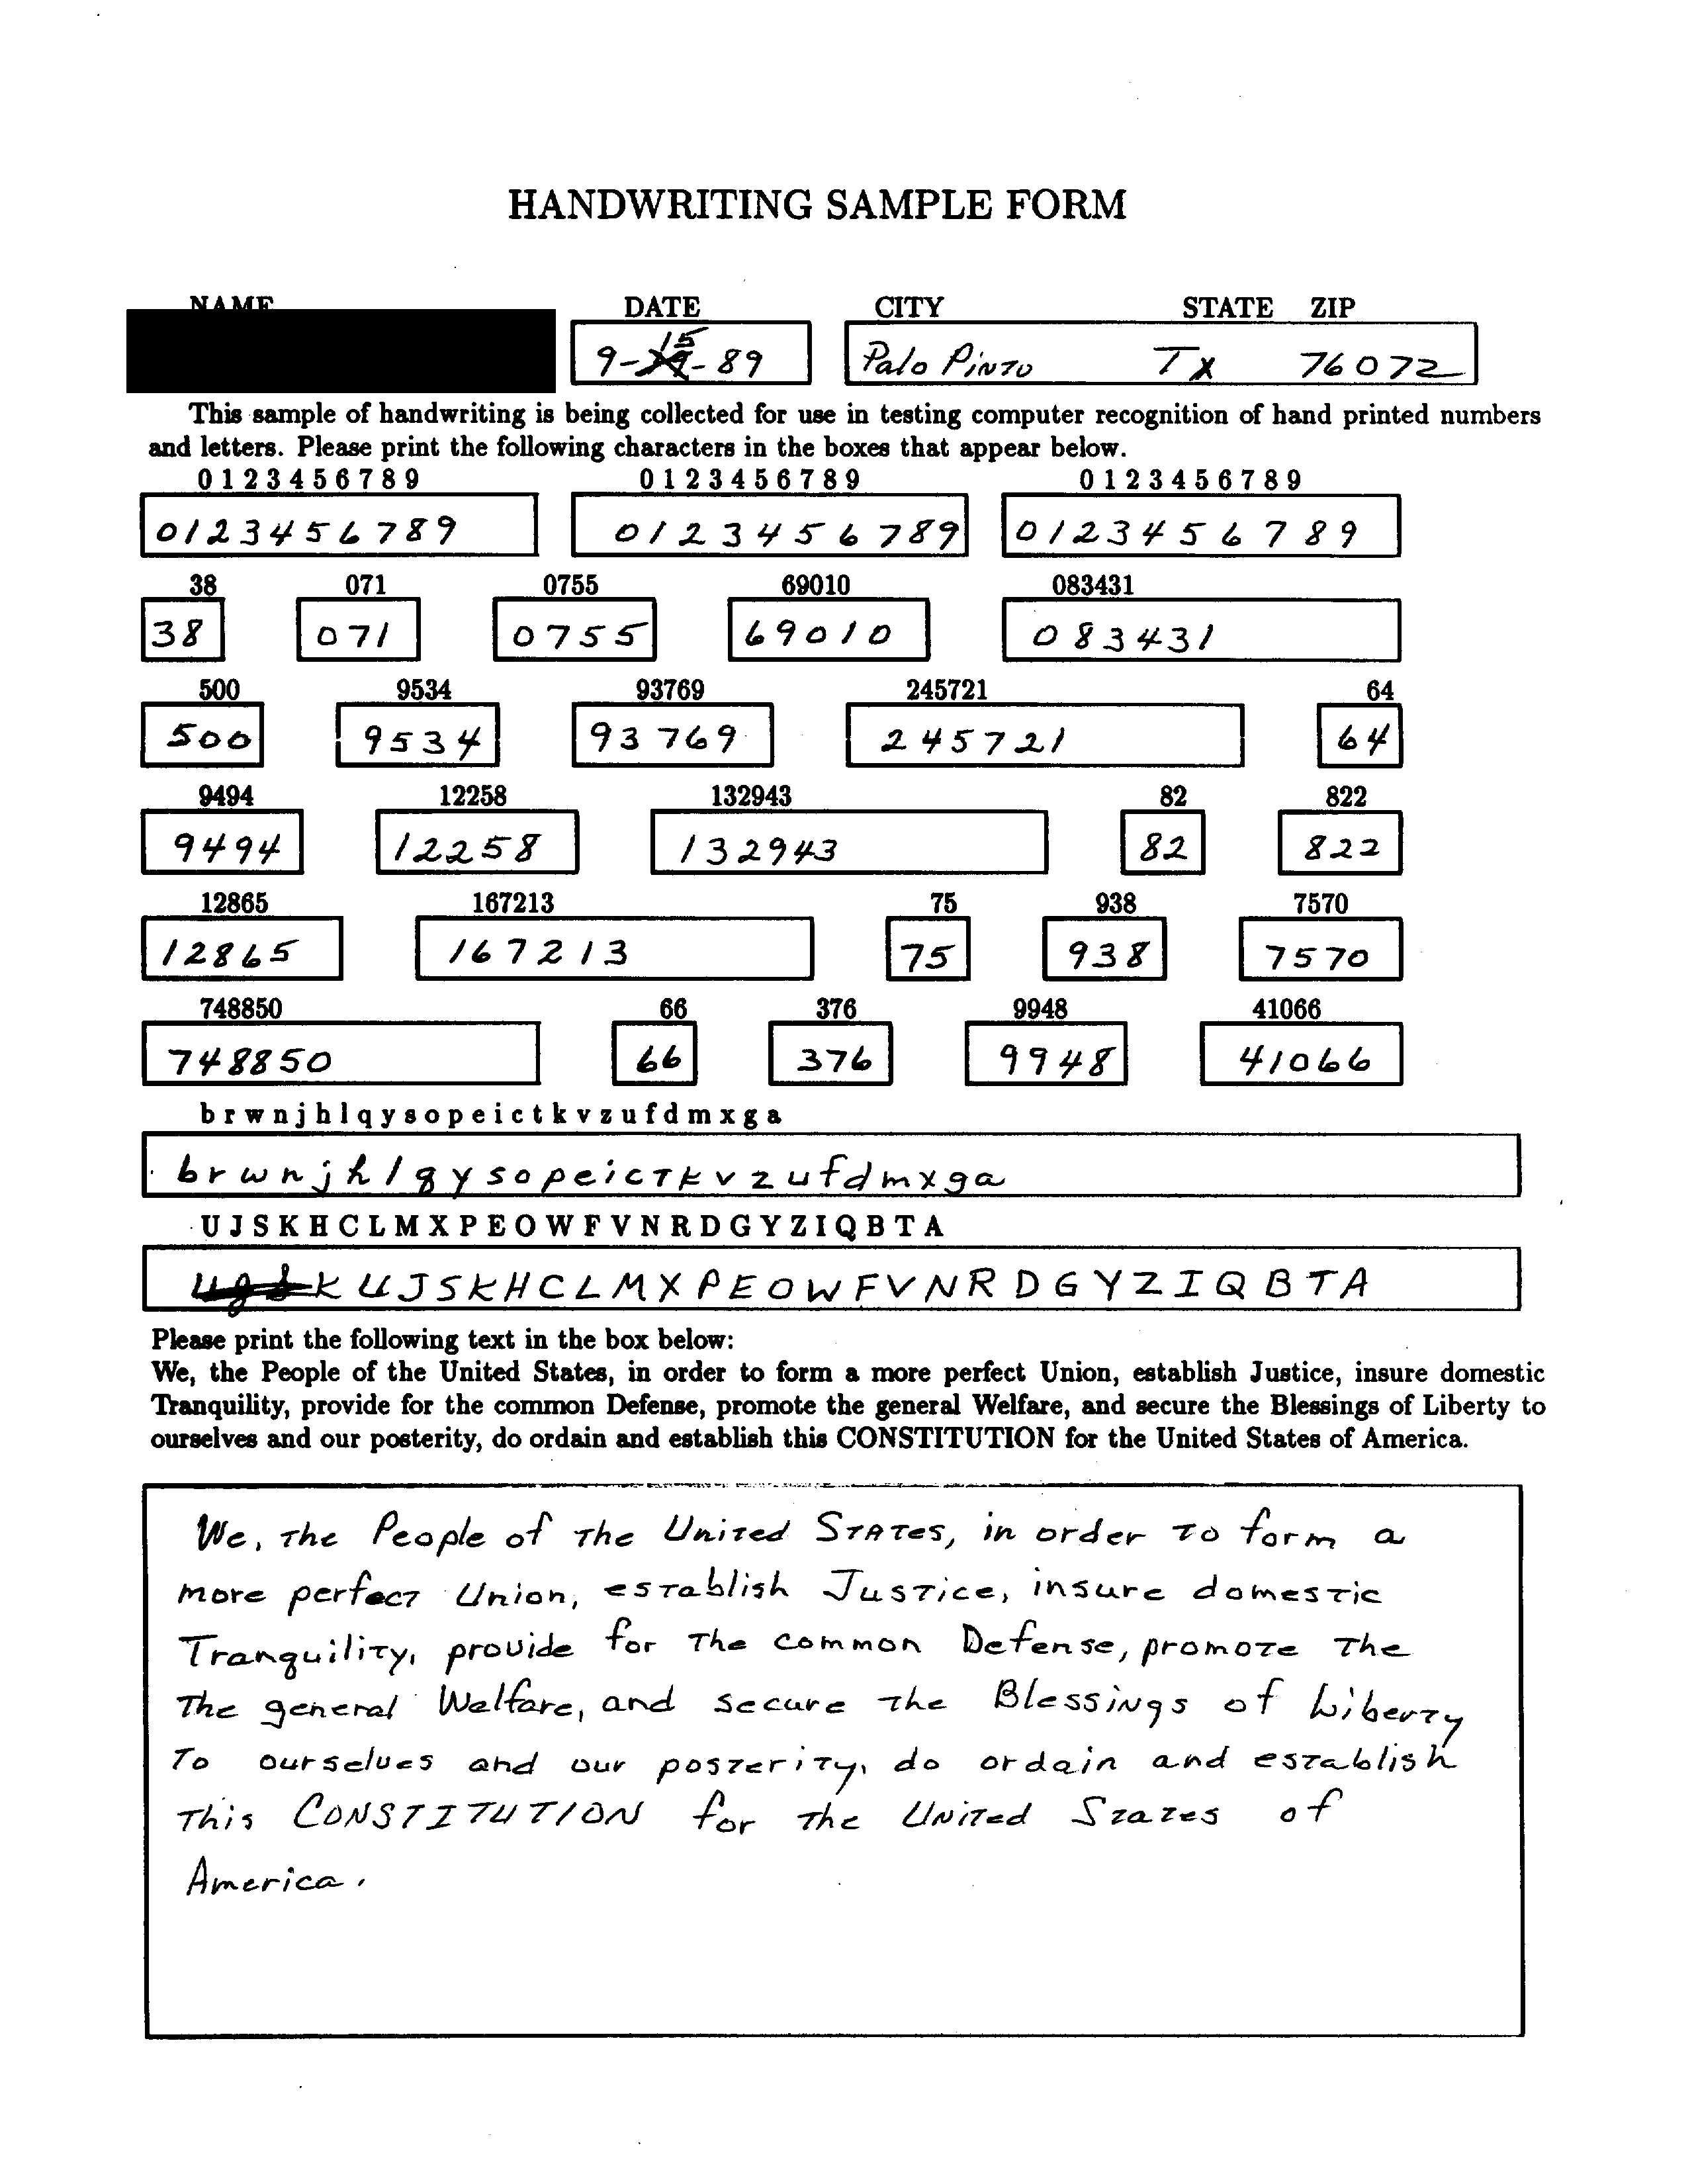 HANDWRITING SAMPLE FORM
NAME DATE CITY STATE ZIP
9-15-89 Palo Pinto Tx 76072
This sample of handwriting is being collected for use in testing computer recognition of hand printed numbers
and letters. Please print the following characters in the boxes that appear below.
0 1 2 3 4 5 6 7 8 9 0 1 2 3 4 5 6 7 8 9 0 1 2 3 4 5 6 7 8 9
0123456789 0123456789 0123456789
38 071 0755 69010 083431
38 071 0755 69010 083431
500 9534 93769 245721 64
500 9534 93769 245721 64
9494 12258 132943 82 822
9494 12258 132943 82 822
12865 167213 75 938 7570
12865 167213 75 938 7570
748850 66 376 9948 41066
748850 66 376 9948 41066
b r w n j h l q y s o p e i c t k v z u f d m x g a
b r w n j h l q y s o p e i c t k v z u f d m x g a
U J S K H C L M X P E O W F V N R D G Y Z I Q B T A
K U J S K H C L M X P E O W F V N R D G Y Z I Q B T A
Please print the following text in the box below:
We, the People of the United States, in order to form a more perfect Union, establish Justice, insure domestic
Tranquility, provide for the common Defense, promote the general Welfare, and secure the Blessings of Liberty to
ourselves and our posterity, do ordain and establish this CONSTITUTION for the United States of America.
We, the People of the United States, in order to form a
more perfect Union, establish Justice, insure domestic
Tranquility, provide for the common Defense, promote the
The general Welfare, and secure the Blessings of Liberty
To ourselves and our posterity, do ordain and establish
This CONSTITUTION for the United States of
America.